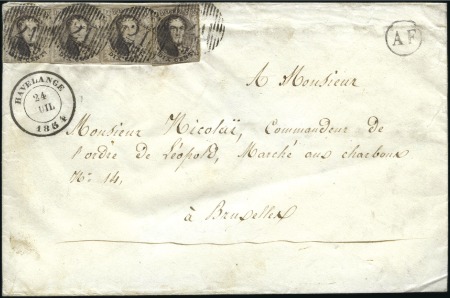 A F
HAVELANGE
24
UIL
1854
A Monsieur
Monsieur Nicolaï, Commandeur de
l'ordre de Léopold, Marché aux charbons
No 14,
à Bruxelles